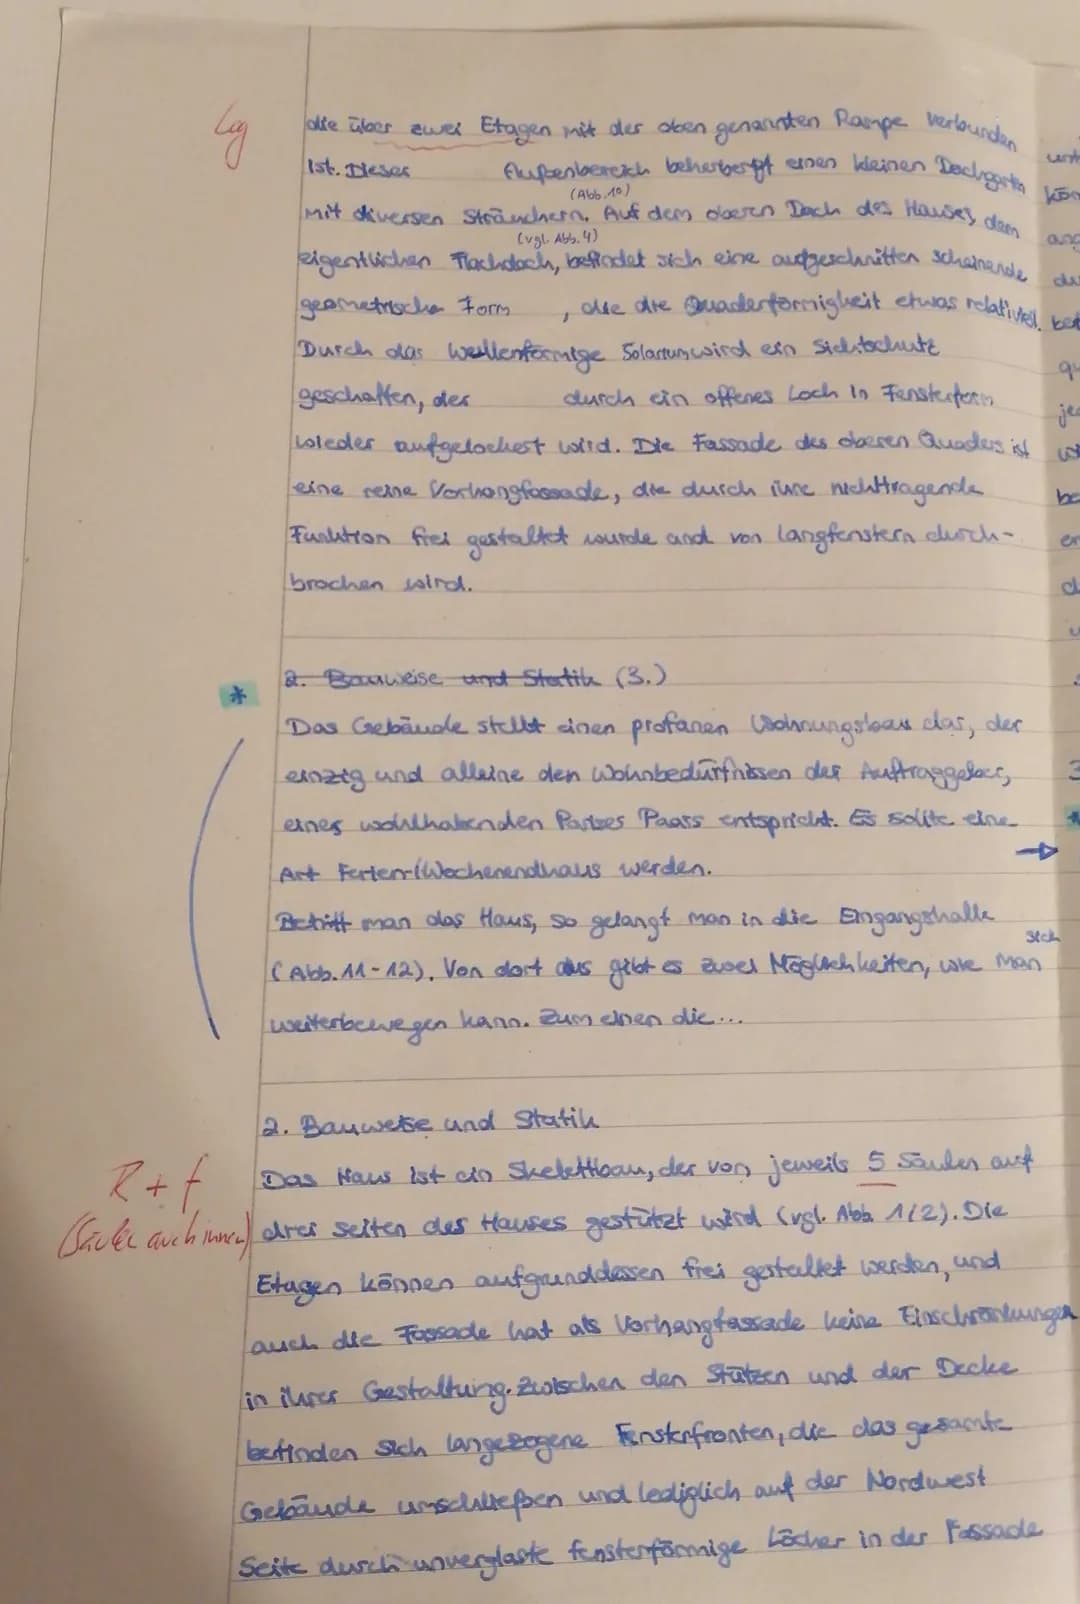 Lg
die über zwei Etagen mit der oben genannten Rampe verbunden
ist. Dieser Außenbereich beherbergt einen kleinen Dachgarten
(Abb. 10)
mit diversen Sträuchern. Auf dem oberen Dach des Hauses, dem
(vgl. Abb. 4)
eigentlichen Flachdach, befindet sich eine aufgeschnitten scheinende
geometrische Form , die die Quaderförmigkeit etwas relativiert.
Durch das wellenförmige Solarium wird ein Sichtschutz
geschaffen, der durch ein offenes Loch in Fensterform
wieder aufgelockert wird. Die Fassade des oberen Quaders ist
eine reine Vorhangfassade, die durch ihre nichttragende
Funktion frei gestaltet wurde und von Langfenstern durch-
brochen wird.
* 2. Bauweise und Statik (3.)
Das Gebäude stellt einen profanen Wohnungsbau dar, der
einzig und alleine den Wohnbedürfnissen der Auftraggeber,
eines wohlhabenden Pariser Paars entspricht. Es sollte eine
Art Ferien-/Wochenendhaus werden.
Betritt man das Haus, so gelangt man in die Eingangshalle
sich
(Abb. 11-12). Von dort aus gibt es zwei Möglichkeiten, wie man
weiterbewegen kann. Zum einen die...
2. Bauweise und Statik
R + f
(Säulen auch innen)
Das Haus ist ein Skelettbau, der von jeweils 5 Säulen auf
drei Seiten des Hauses gestützt wird (vgl. Abb 1/2). Die
Etagen können aufgrunddessen frei gestaltet werden, und
auch die Fassade hat als Vorhangfassade keine Einschränkungen
in ihrer Gestaltung. Zwischen den Stützen und der Decke
befinden sich langezogene Fensterfronten, die das gesamte
Gebäude umschließen und lediglich auf der Nordwest
Seite durch unverglaste fensterförmige Löcher in der Fassade